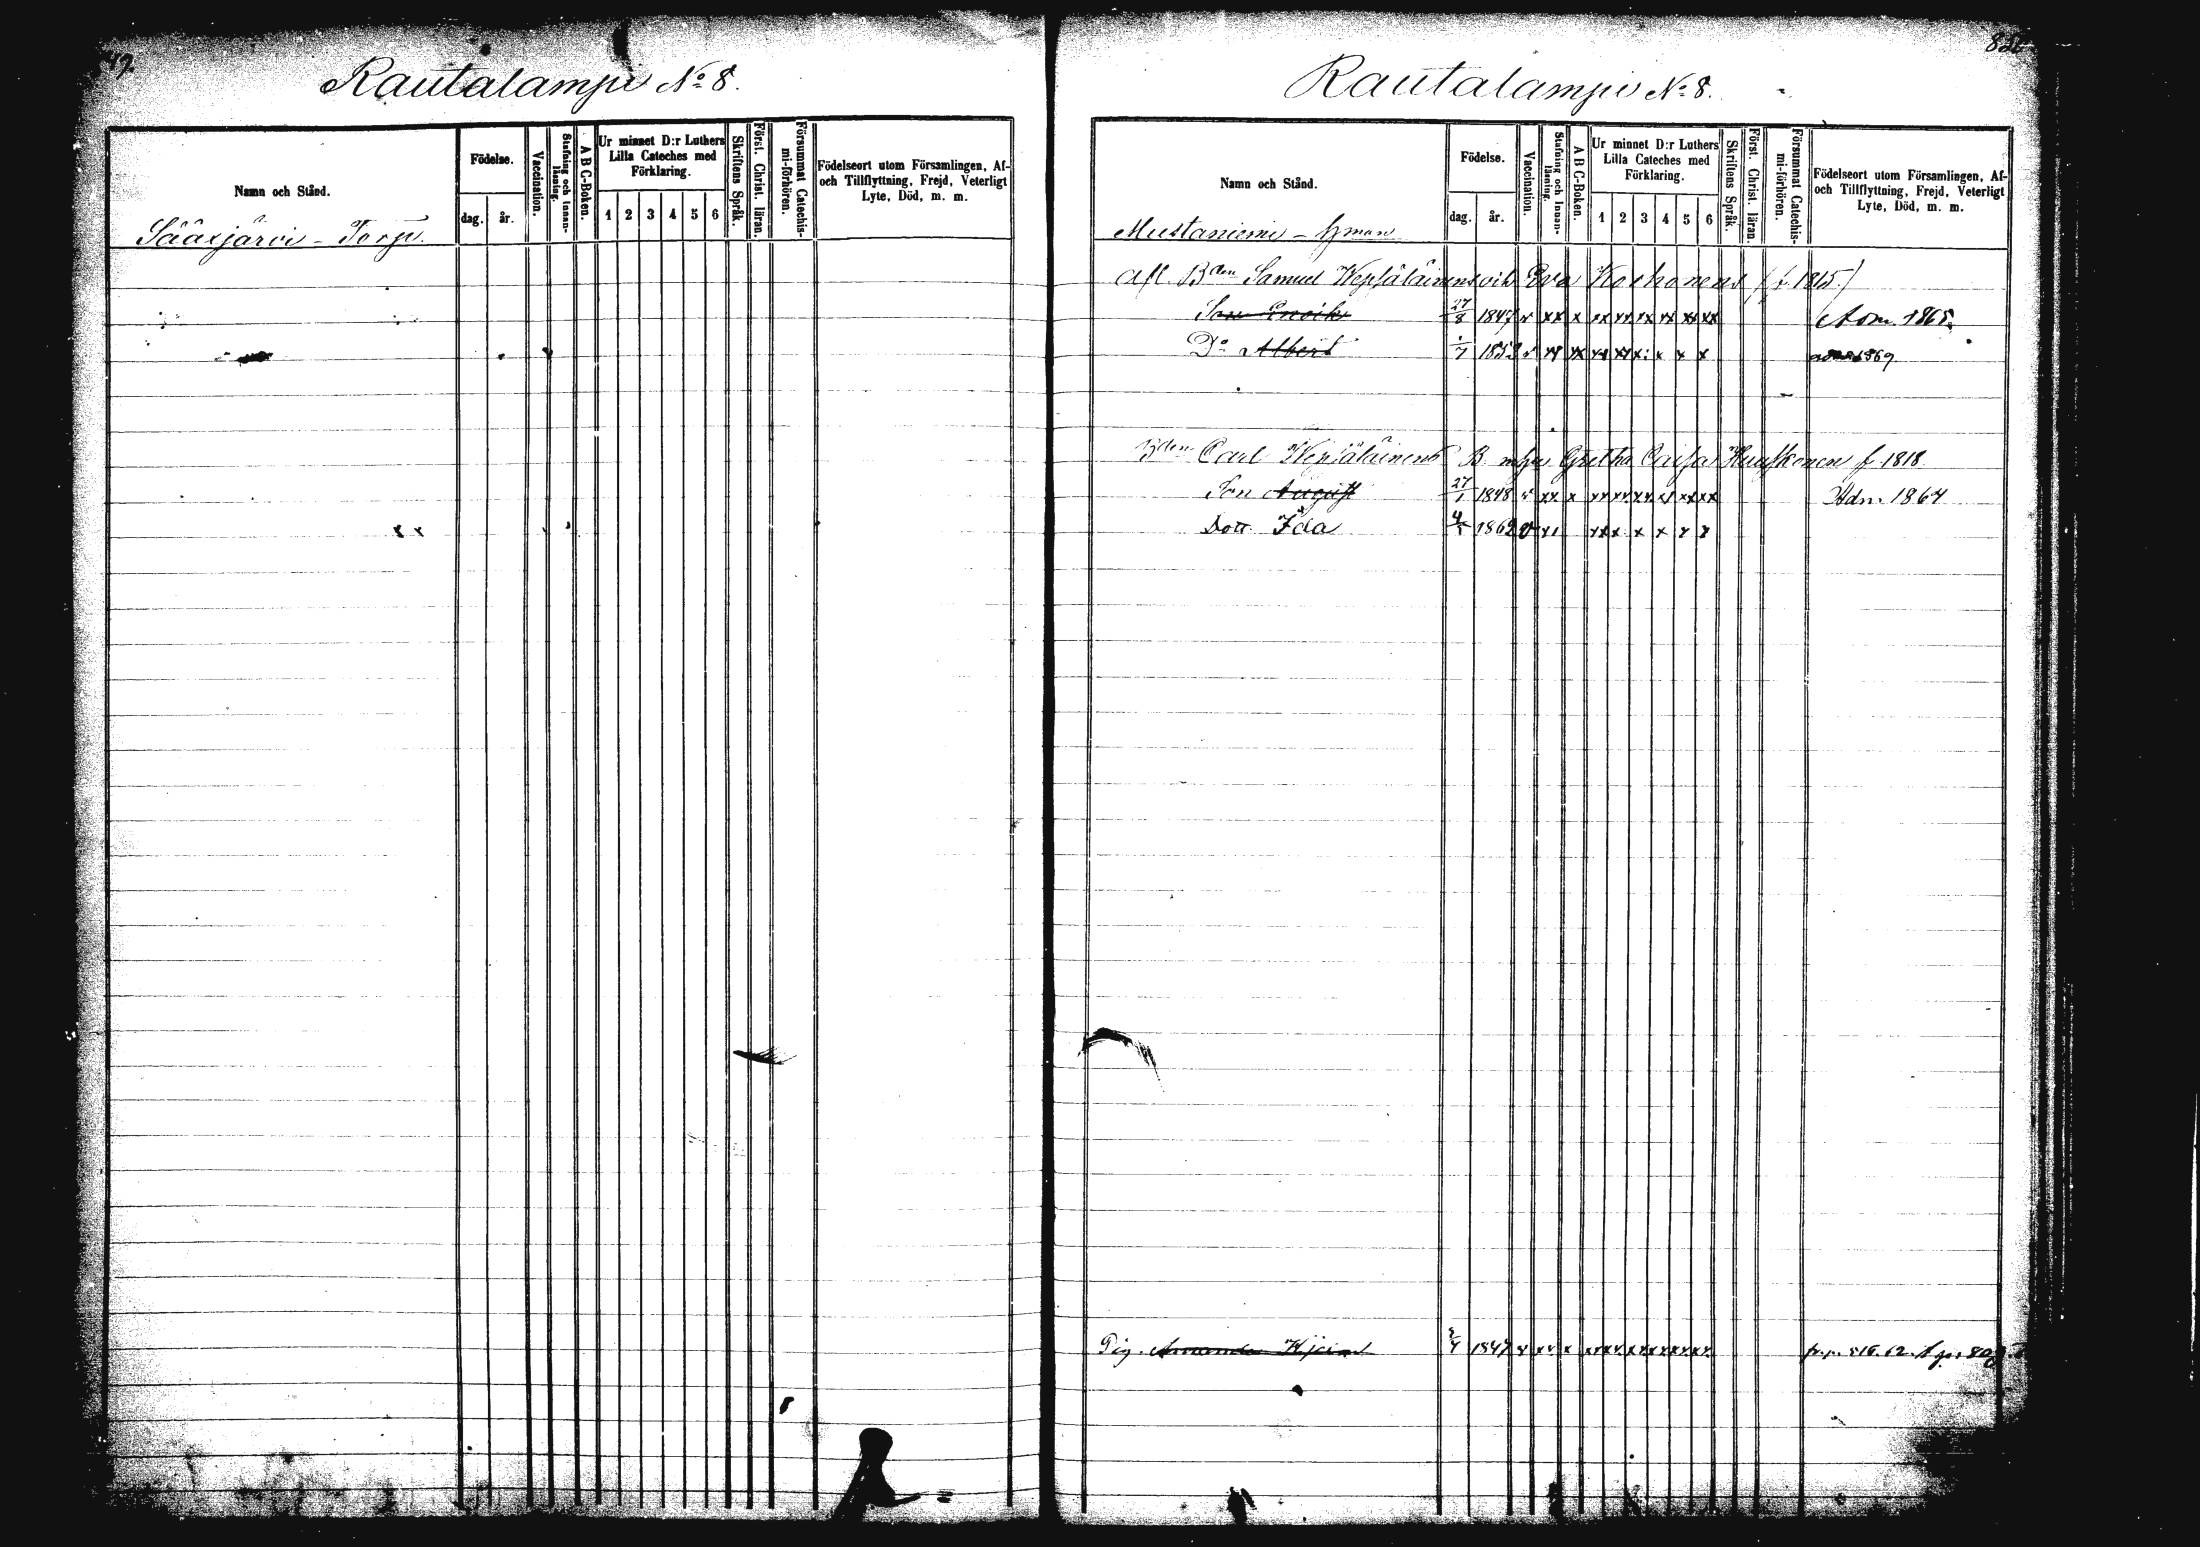 Rautalampi No 8.
Namn och Stånd.
Födelse.
dag. år.
Vaccination.
Stafning och Innan-läsning.
A B C-Boken.
Ur minnet D:r Luthers Lilla Cateches med Förklaring.
1 2 3 4 5 6
Skriftens Språk.
Först. Christ. läran.
Försummat Catechis-mi-förhören.
Födelseort utom Församlingen, Af- och Tillflyttning, Frejd, Veterligt Lyte, Död, m. m.
Sääxjärvi - Torp.
Rautalampi No 8.
Namn och Stånd.
Födelse.
dag. år.
Vaccination.
Stafning och Innan-läsning.
A B C-Boken.
Ur minnet D:r Luthers Lilla Cateches med Förklaring.
1 2 3 4 5 6
Skriftens Språk.
Först. Christ. läran.
Försumat Catechis-mi-förhören.
Födelseort utom Församlingen, Af- och Tillflyttning, Frejd, Veterligt Lyte, Död, m. m.
Mustaniemi - Hman
Afl. Bden Samuel Wepsäläinens Eva Korhonens (f. 1815.)
Son Enoik 27/8 1847 v xx x xx xx xx xx xx xx Adm. 1865.
Do Albert 1853 1869
Bden Carl Wepsäläinens Gretha Caisa Huuskonen f 1818.
Son August 27/1 1848 v xx x xx xx xx xx xx xx Adm. 1864
Dott. Ida 1862 v
Pig. 1847